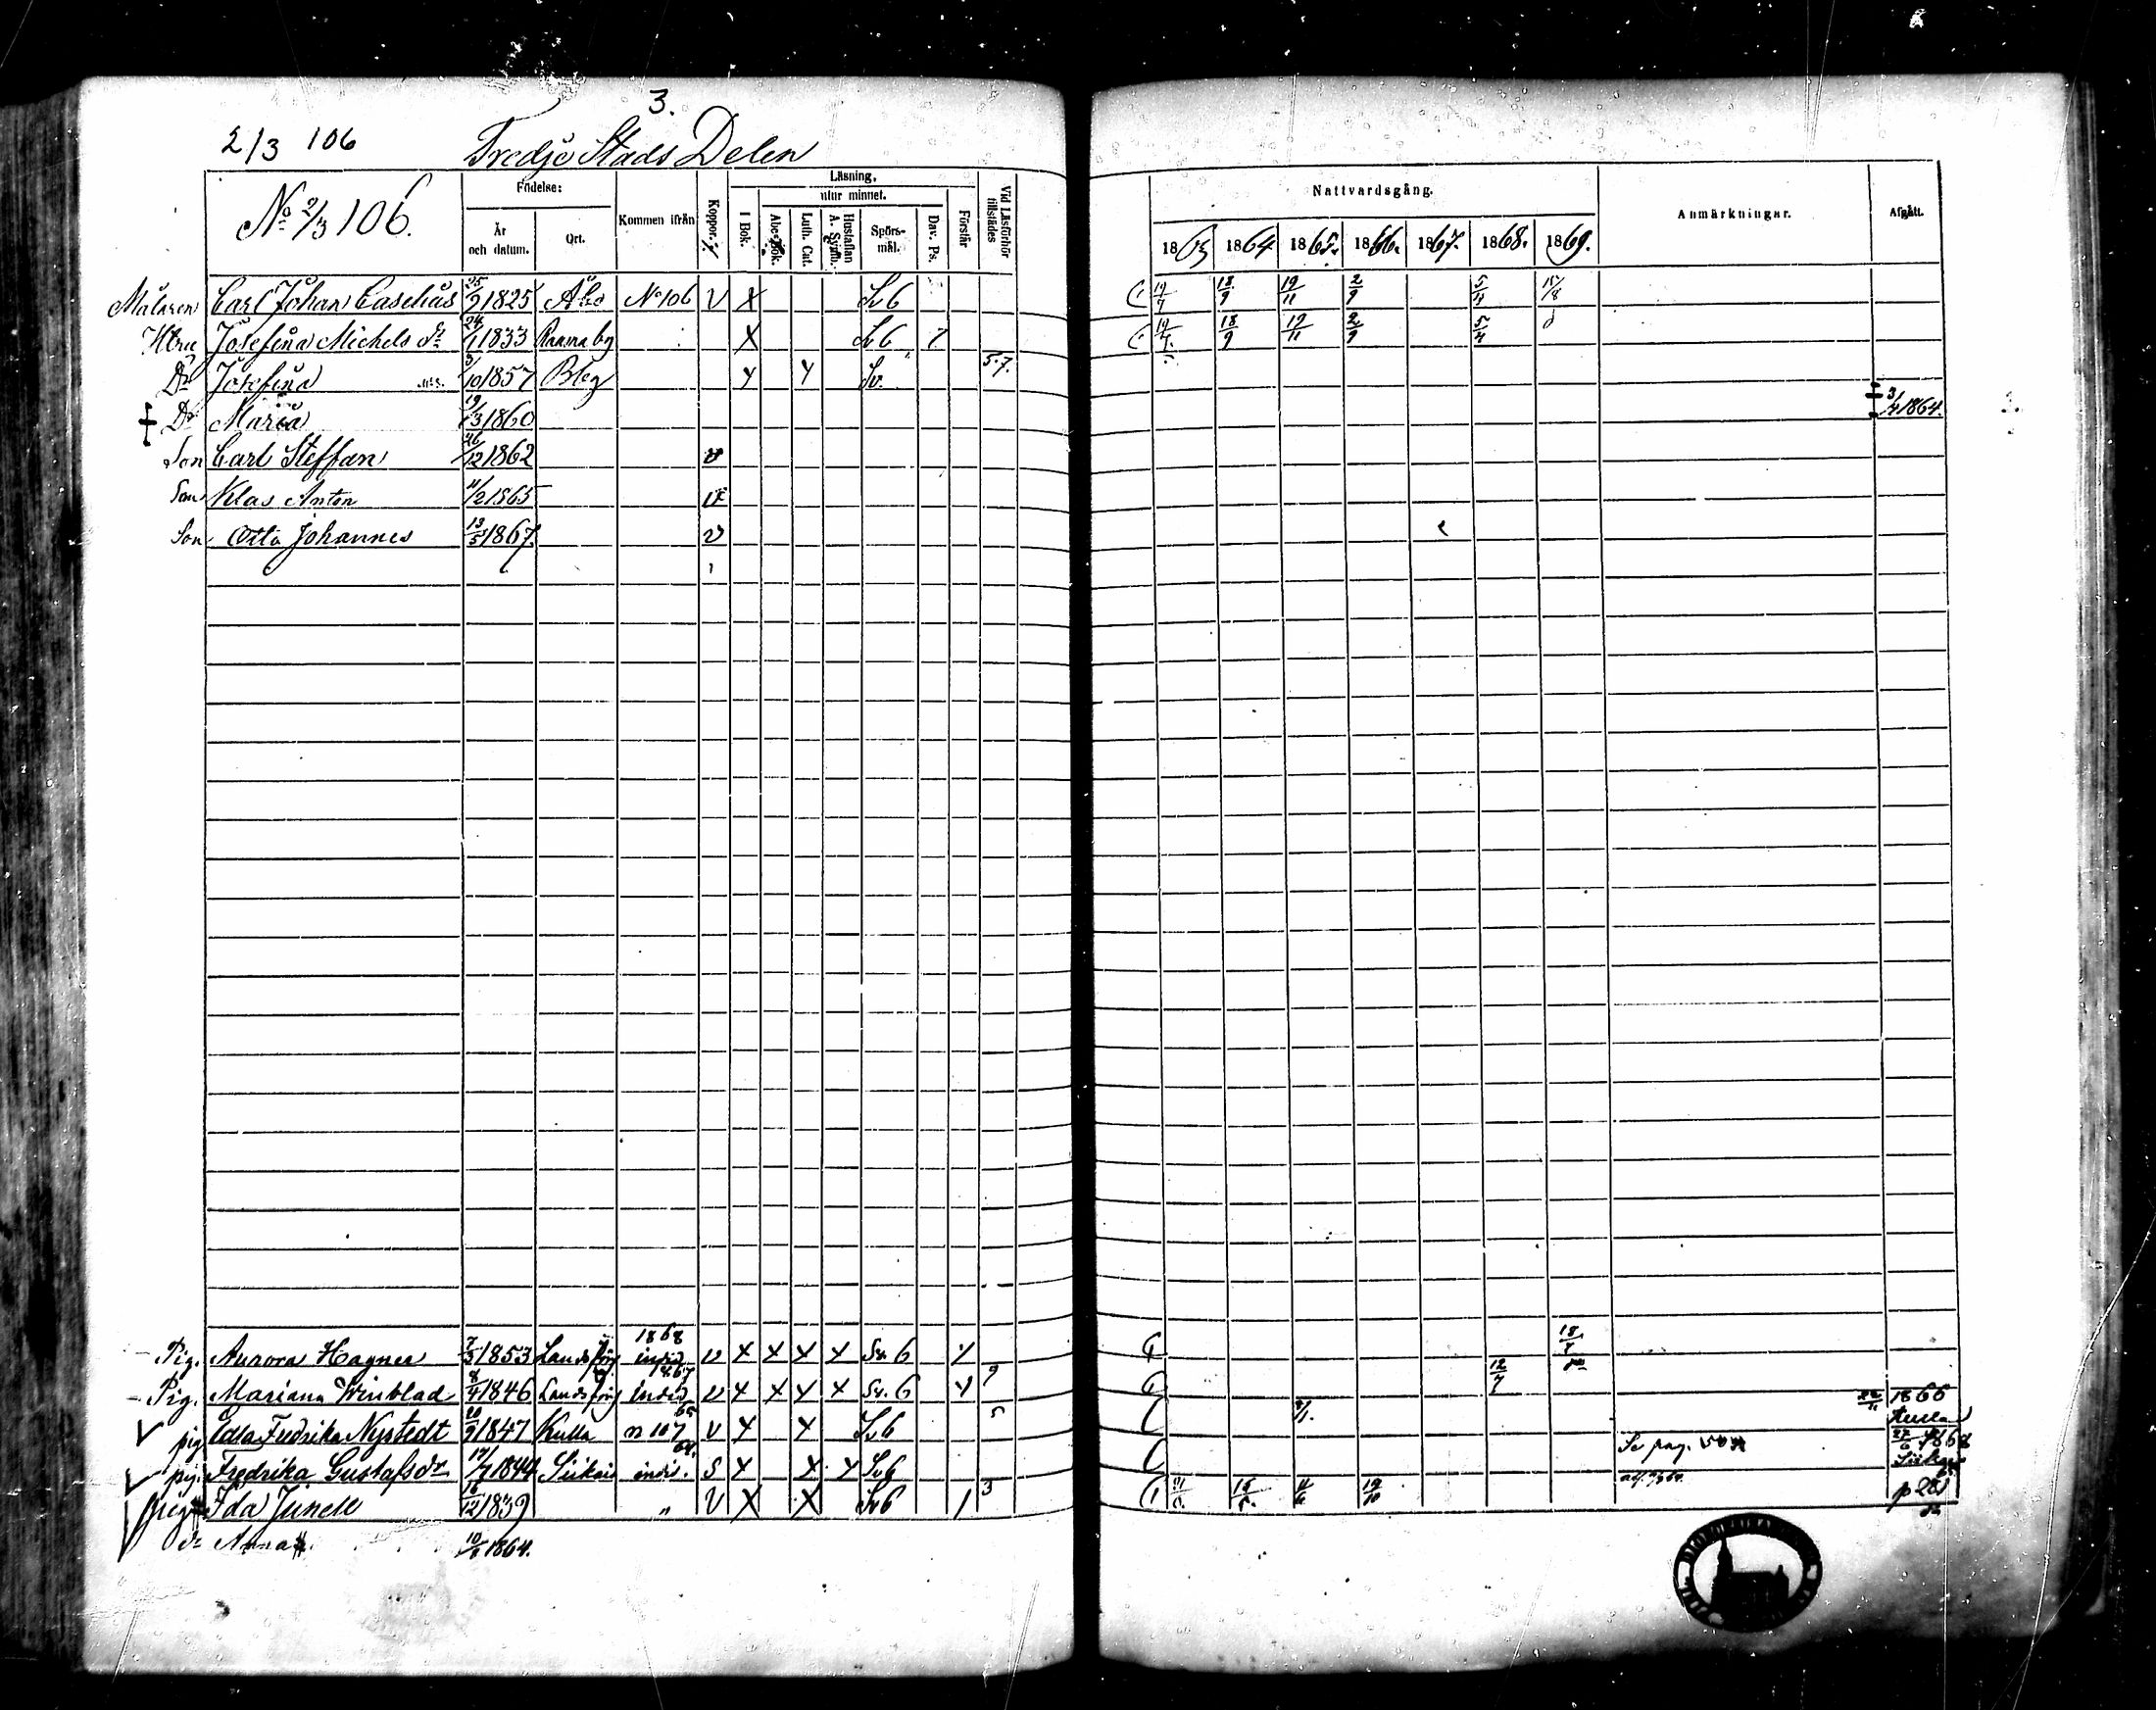 3.
2/3 106 Tredje Stads Delen
No 2/3 106.
Födelse: År och datum. Ort.
Kommen ifrån
Koppor.
Läsning, utur minnet.
I Bok. Abc-Bok. Luth. Cat. Hustaflan A. Symb. Spörsmål. Dav. Ps. Förstår
Vid Läsförhör tillstädes
Nattvardsgång.
1863 1864 1865. 1866. 1867. 1868. 1869.
Anmärkningar.
Afgått.
Målaren Carl Johan Caselius 25/9 1825 Åbo No 106 V X Sv 6 19/7 18/9 19/11 2/9 5/4 15/8
Hbru Josefina Michels dr 24/1 1833 Ranna by X Sv 6 19/7 18/9 19/11 2/9 5/4
Dr Josefina 3/10 1857 Bbg Y Y Sv. 57.
† Dr Maria 19/3 1860 † 3/4 1864.
Son Carl Steffan 26/12 1862 v
Son Klas Anton 11/2 1865 v
Son Otto Johannes 13/5 1867. v
1868
Pig. Aurora Hagner 7/3 1853 Landsförs. v X X X X Sv. 6 18/
1867
Pig. Mariana Winblad 8/4 1846 Landsförs v X X X X Sv. 6 9 12/7
65
pig Edla Fredrika Nystedt 20/9 1847 Kulla n 107 V X X Sv6 5 22/11 1866
64.
pig. Fredrika Gustafsdr 17/7 1844 Siikais S X X X Sv6 Se pag. 1868
pig Ida Junell 16/12 1839 " V X X Sv6 3 19/10 p 281
dr Anna. 10/6 1864.